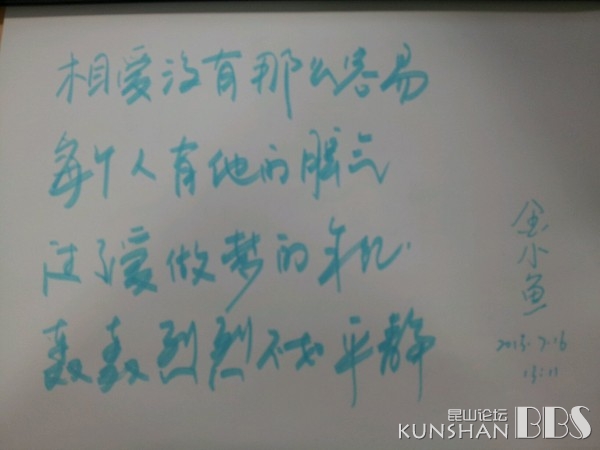 相爱没有那么容易
每个人有他的脾气
过了爱做梦的年纪
轰轰烈烈不如平静
金小鱼
昆山论坛
KUNSHAN BBS